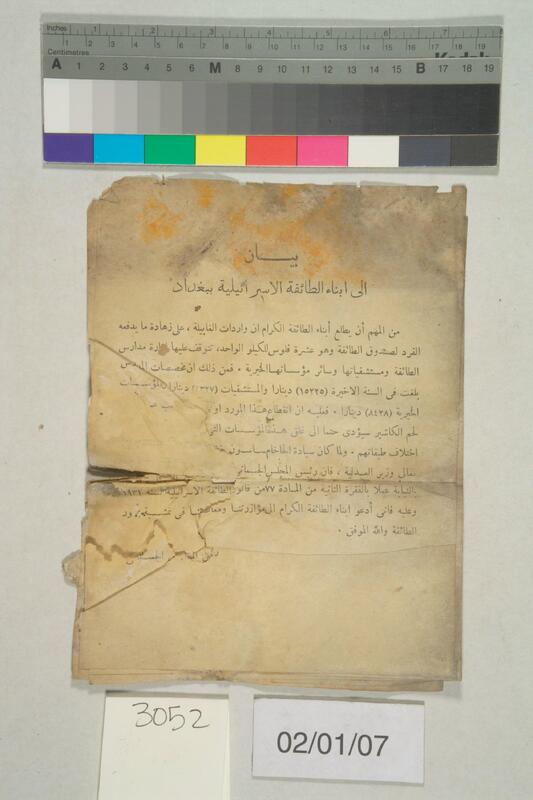 Inches 1 2 3 4 5 6 7 8
Centimetres 1 2 3 4 5 6 7 8 9 10 11 12 13 14 15 16 17 18 19
Kodak
A 1 2 3 4 5 6 M 8 9 10 11 12 13 14 15 B 17 18 19
بيـــان
الى ابناء الطائفة الاسرائيلية ببغداد
من المهم أن يطلع أبناء الطائفة الكرام ان واردات الغابيلة ، على زهادة ما يدفعه
الفرد لصندوق الطائفة وهو عشرة فلوس للكيلو الواحد، تتوقف عليها ادارة مدارس
الطائفة ومستشفياتها وسائر مؤسساتها الخيرية . فمن ذلك ان مخصصات المدارس
بلغت في السنة الاخيرة (١٥٢٢٥) دينارا والمستشفيات دينارا والمؤسسات
الخيرية (٨٤٢٨) دينارا . فعليه ان انقطاع هذا المورد او
لحم الكاشير سيؤدي حتما الى غلق هذه المؤسسات التي
اختلاف طبقاتهم . ولما كان سيادة الحاخام ساسون
معالي وزير العدلية ، فان رئيس المجلس الجسماني
بالنيابة عملا بالفقرة الثانية من المادة ٧٧ من قانون الطائفة الاسرائيلية لسنة ١٩٣١
وعليه فاني أدعو ابناء الطائفة الكرام الى مؤازرتنا ومعاضدتنا في
الطائفة والله الموفق .
رئيس المجلس الجسماني
3052
02/01/07